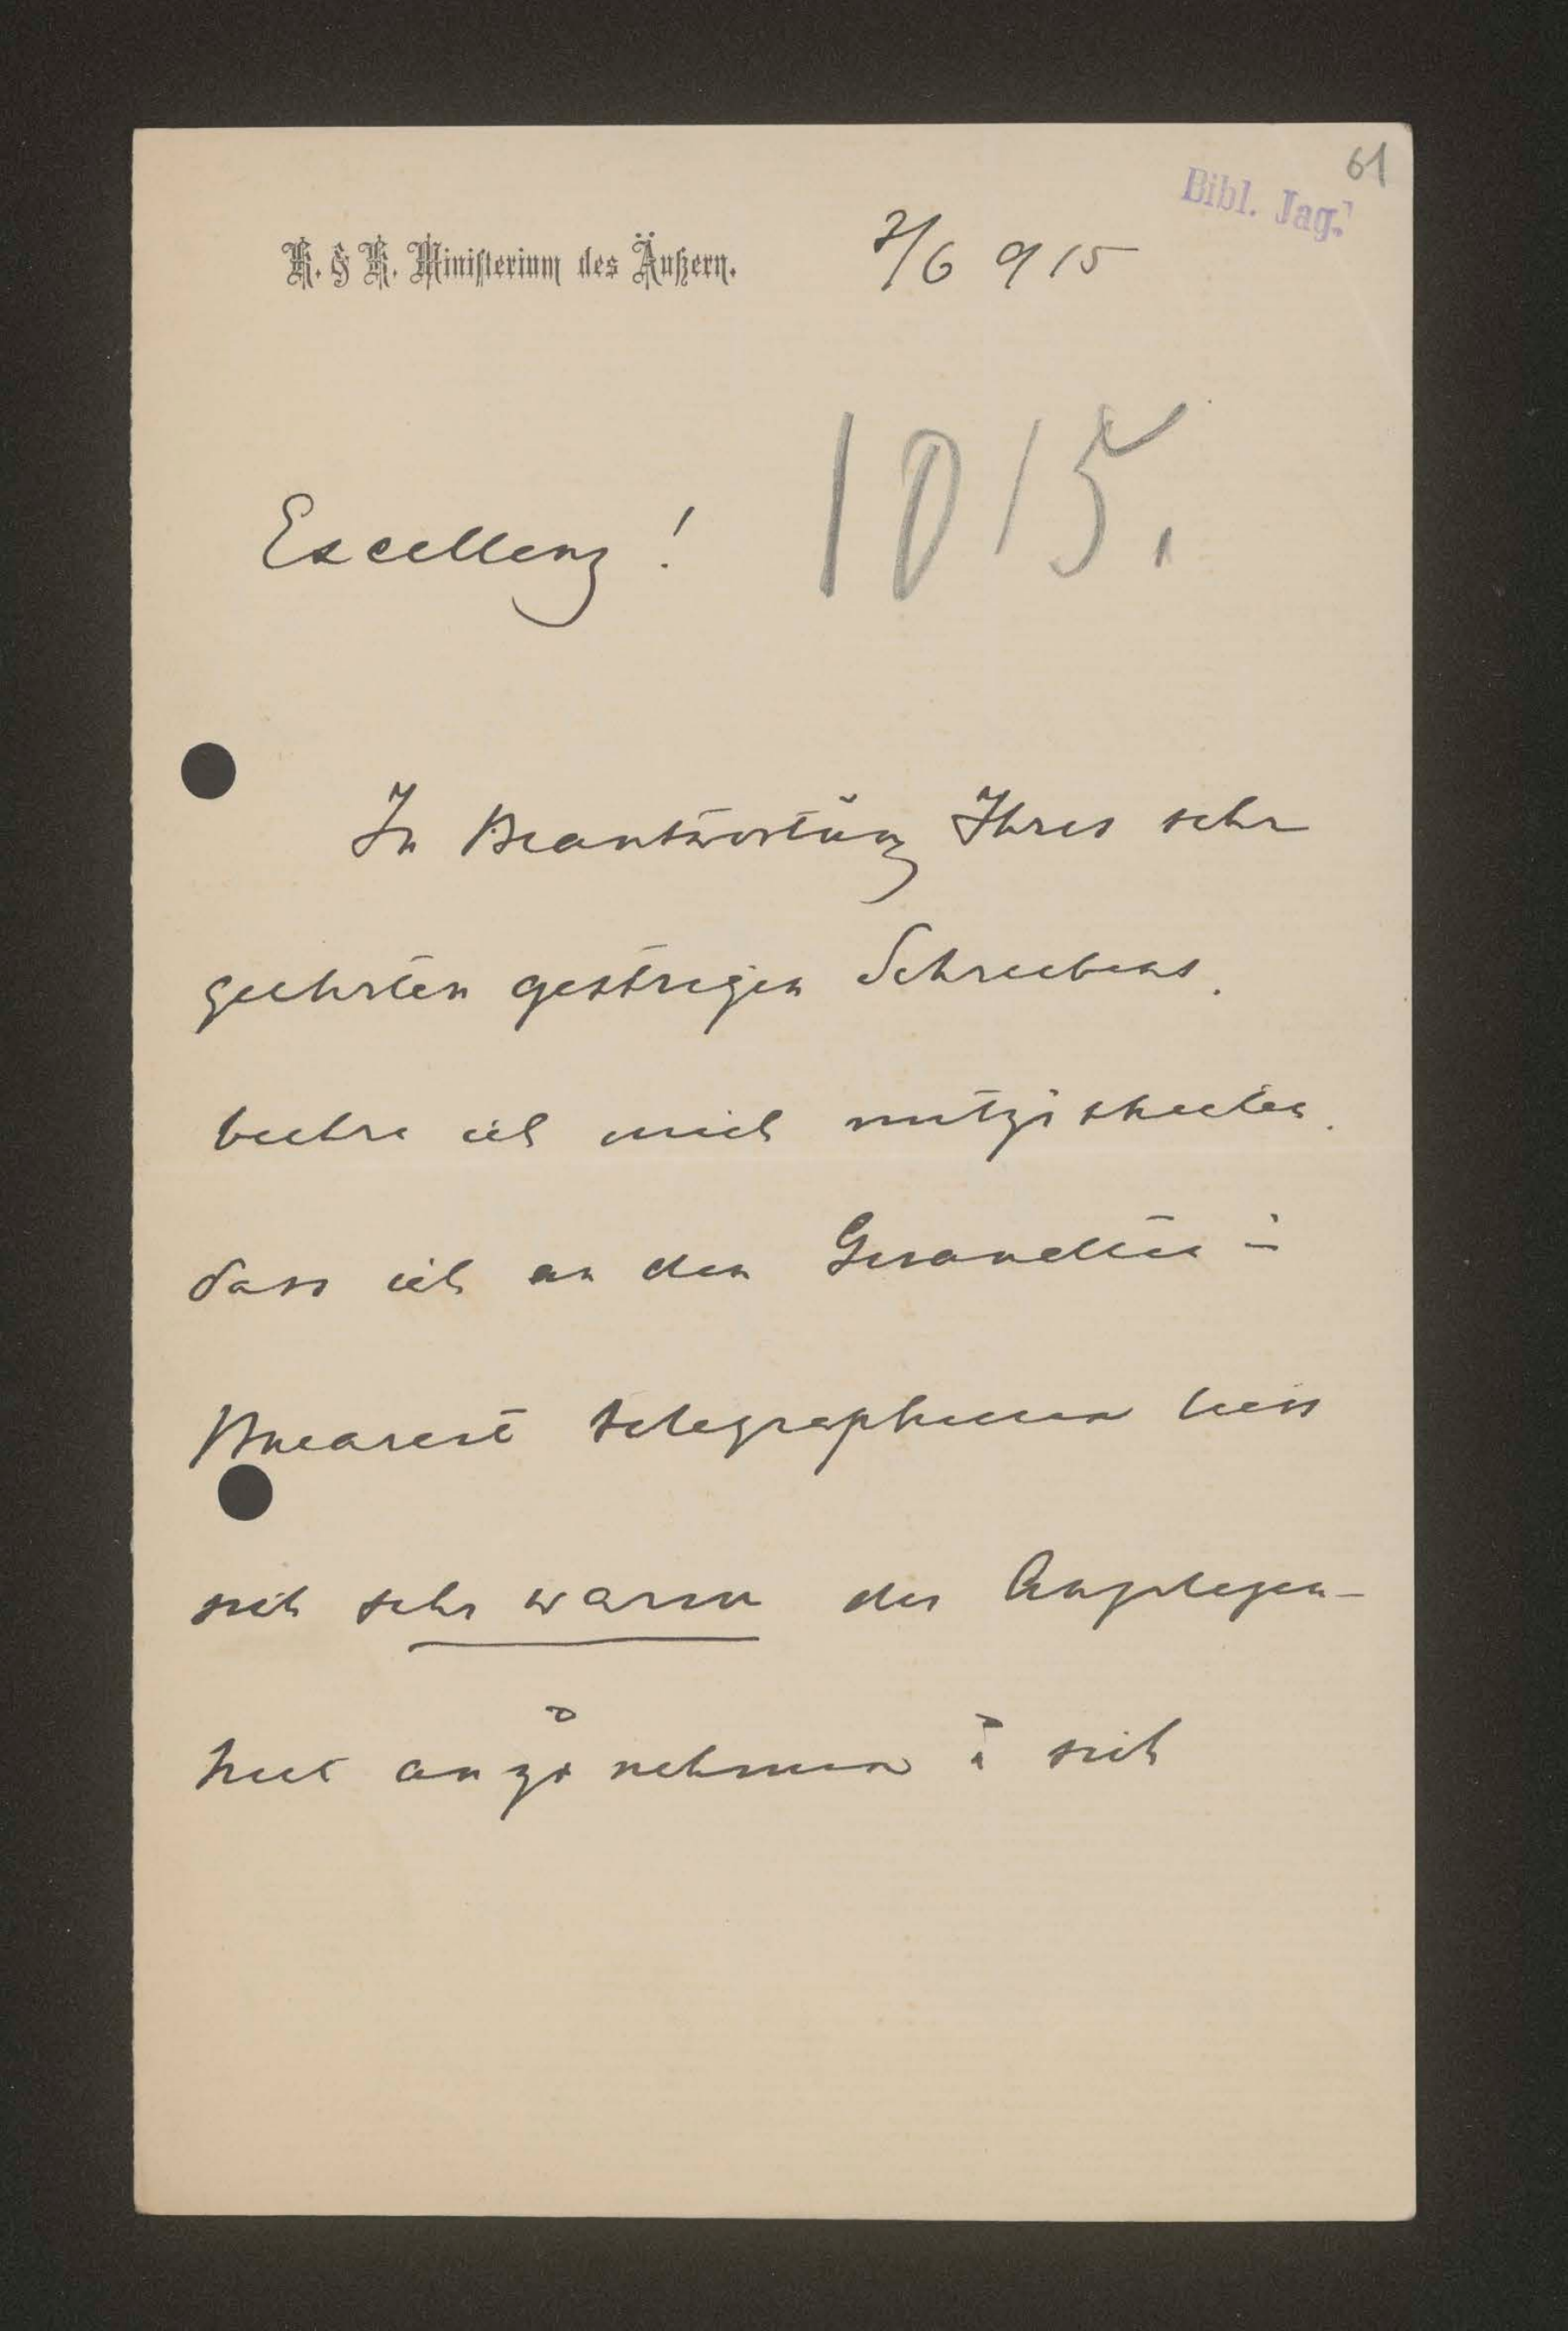 61
Bibl. Jag.
K. & K. Ministerium des Äußern.
7/6 915
1015.
Excellenz!
In Beantwortung Ihres sehr
geehrten gestrigen Schreibens
beehre ich mich mitzutheilen
dass ich an den Gesandten i
Bucarest telegraphieren liess
sich sehr warm der Angelegen-
heit anzunehmen u sich